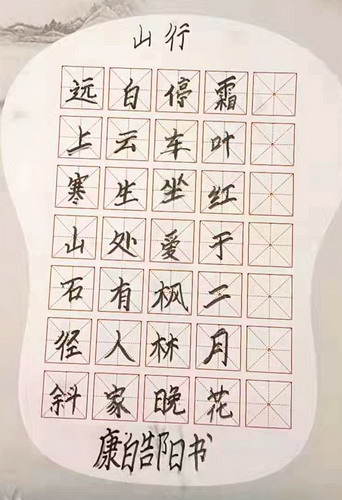 山行
远上寒山石径斜
白云生处有人家
停车坐爱枫林晚
霜叶红于二月花
康皓阳书